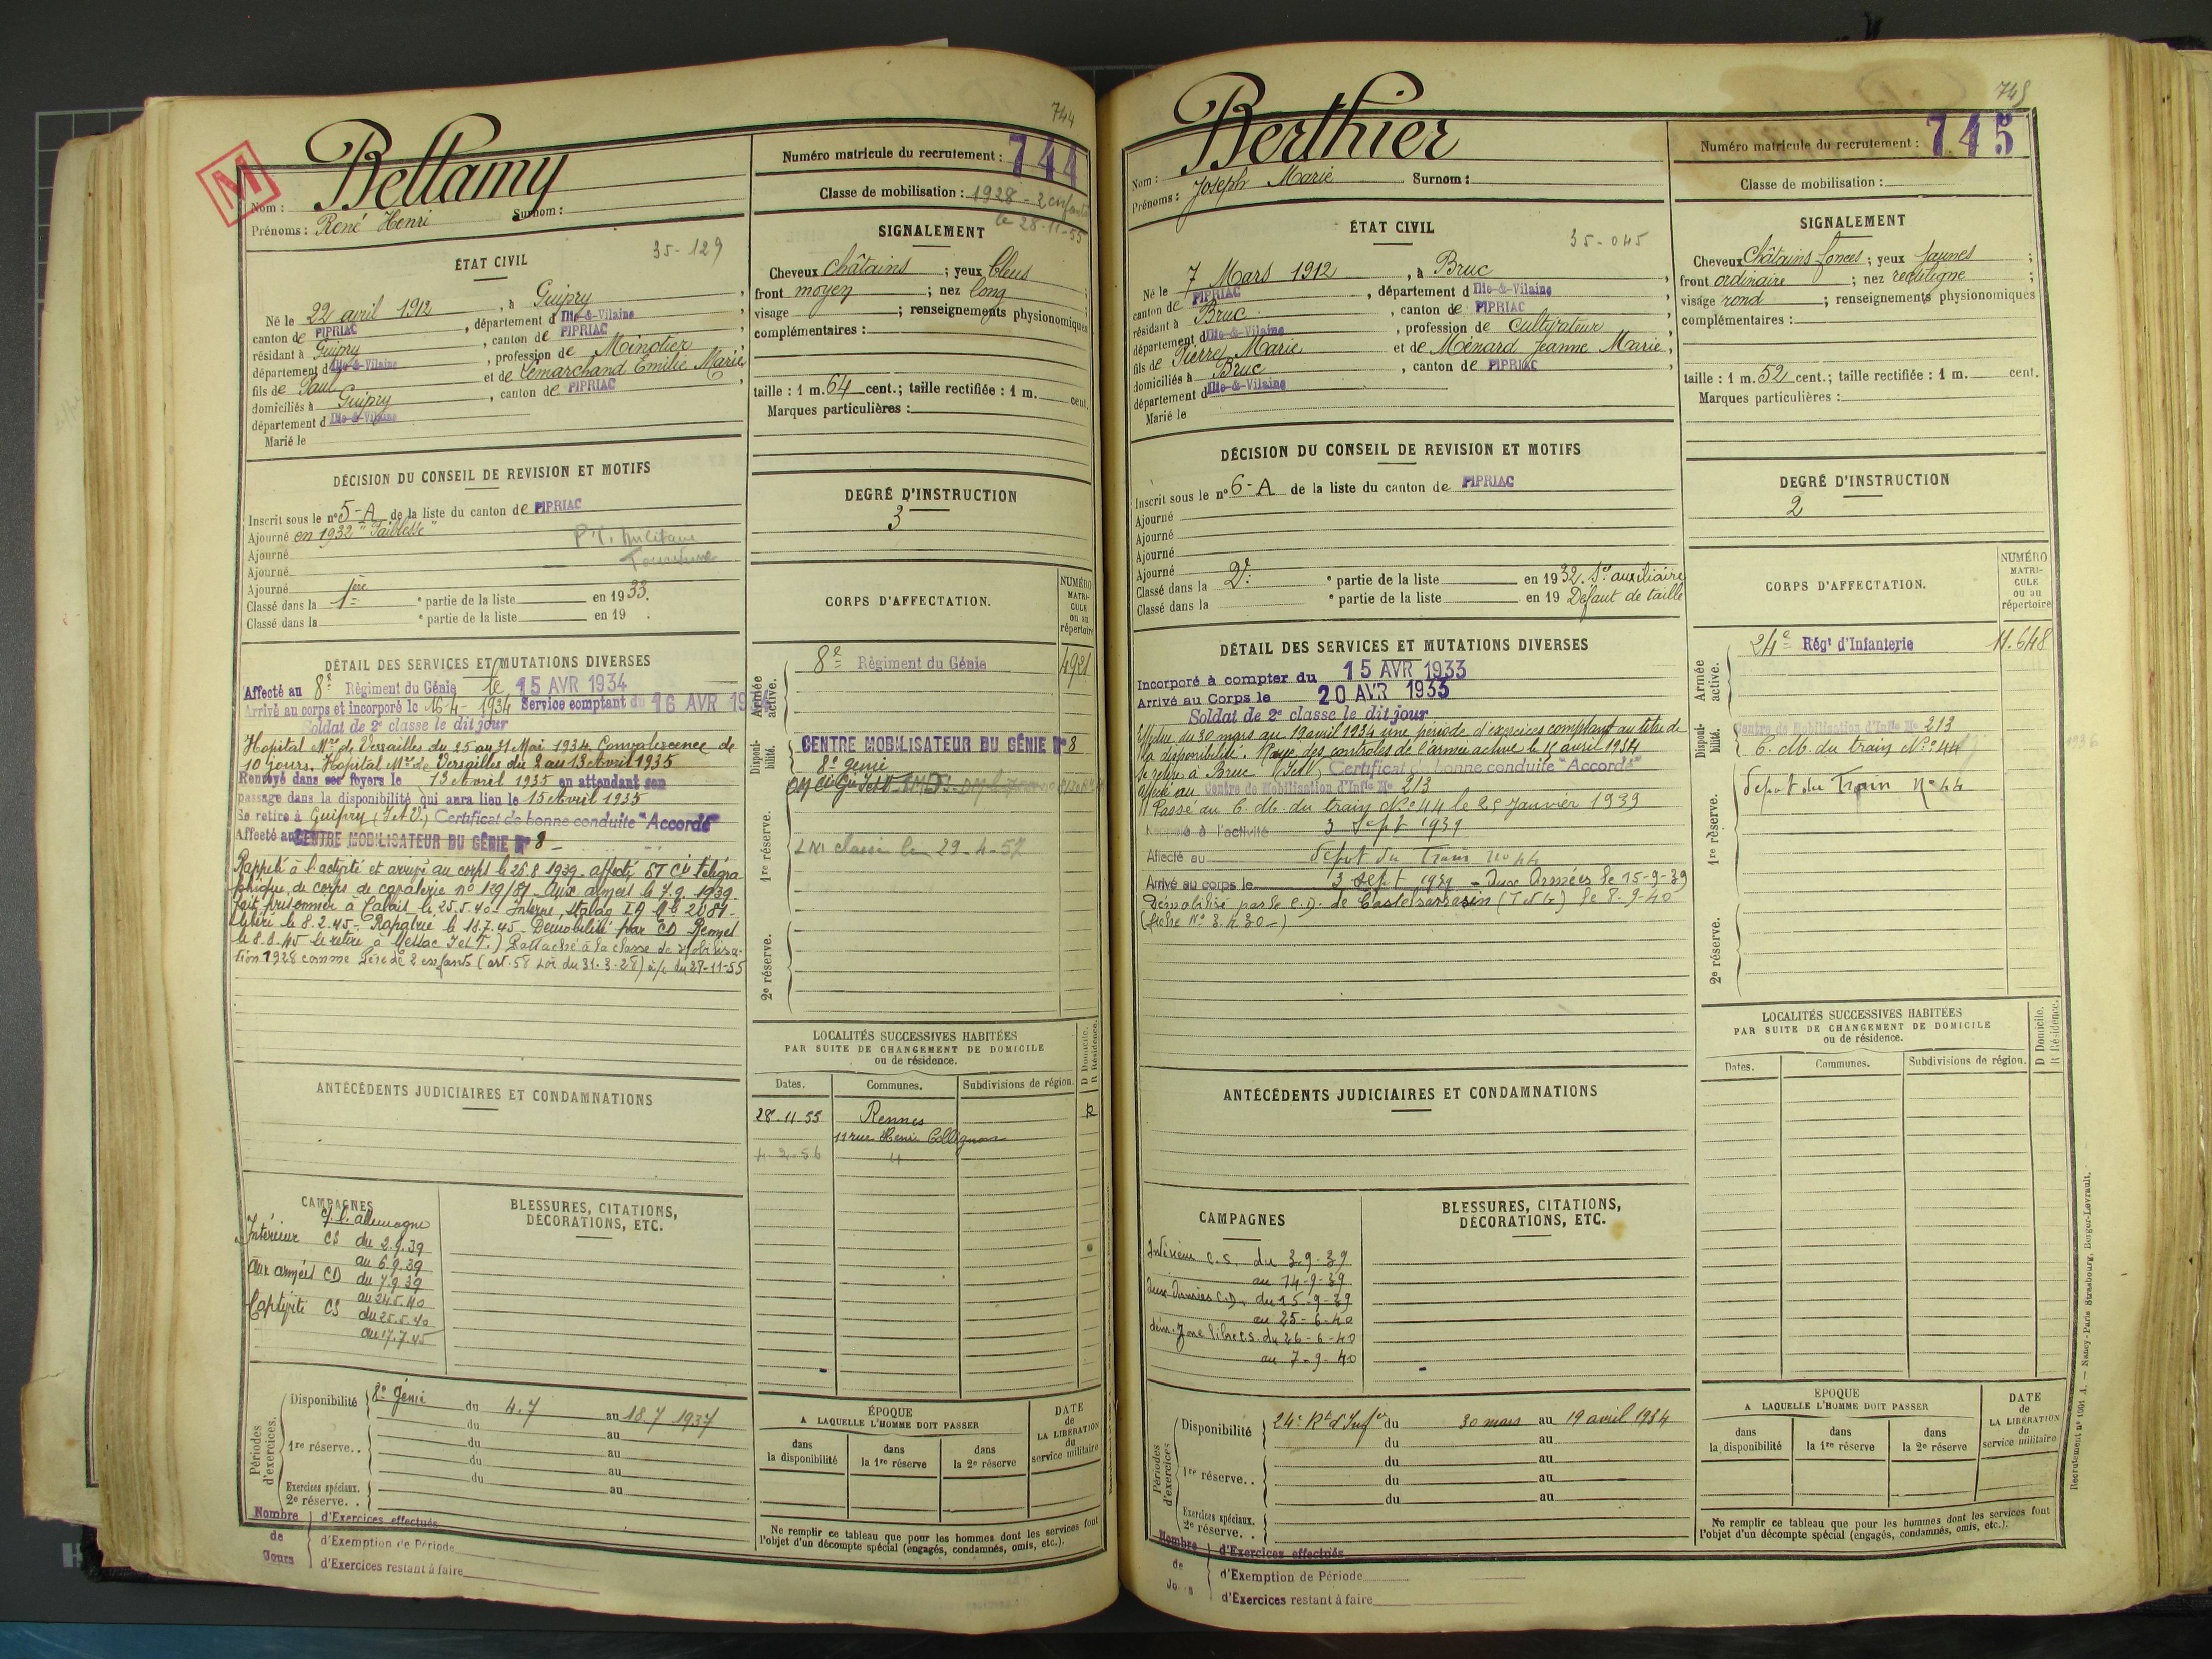 744
M
Bellamy
Nom :
Surnom :
Prénoms : René Henri
35-129
ÉTAT CIVIL
Né le 22 avril 1912, à Guipry,
canton de PIPRIAC, département d Ille-&-Vilaine,
résidant à Guipry, canton de PIPRIAC,
département d Ille-&-Vilaine, profession de Minotier,
fils de Paul et de Lemarchand Emilie Marie,
domiciliés à Guipry, canton de PIPRIAC,
département d Ille-&-Vilaine
Marié le
DÉCISION DU CONSEIL DE REVISION ET MOTIFS
Inscrit sous le n° 5-A de la liste du canton de PIPRIAC
Ajourné en 1932 "Faiblesse"
Ajourné
Ajourné
Ajourné
Classé dans la 1ère partie de la liste en 1933.
Classé dans la e partie de la liste en 19 .
DÉTAIL DES SERVICES ET MUTATIONS DIVERSES
Affecté au 8e Régiment du Génie le 15 AVR 1934
Arrivé au corps et incorporé le 16-4-1934 Service comptant du 16 AVR 19
Soldat de 2e classe le dit jour
Hopital Mre de Versailles du 25 au 31 Mai 1934. Convalescence de
10 jours. Hopital Mre de Versailles du 2 au 13 Avril 1935
Renvoyé dans ses foyers le 13 Avril 1935 en attendant son
passage dans la disponibilité qui aura lieu le 15 Avril 1935
Se retire à Guipry (I et V.) Certificat de bonne conduite "Accordé"
Affecté au CENTRE MOBILISATEUR DU GÉNIE N° 8 -
Rappelé à l'activité et arrivé au corps le 26.8.1939. affecté ST Cie télégra
phique de corps de cavalerie n° 139/81 - Aux armées le 7.9.1939.
fait prisonnier à Calais le 25.5.40 - Interné, Stalag IA
libéré le 8.2.45 - Rapatrié le 18.7.45. Démobilisé par CD Rennes
le 8.8.45 se retire à Messac I et V.) Rattaché à la classe de mobilisa-
tion 1928 comme Père de 2 enfants (art. 58 Loi du 31.3.28) à/c du 28-11-55
ANTÉCÉDENTS JUDICIAIRES ET CONDAMNATIONS
CAMPAGNES
C. l. allemagne
Intérieur CS du 2.9.39
au 6.9.39
Aux armées CD du 7.9.39
au 24.5.40
Captivité CS du 25.5.40
au 17.7.45
BLESSURES, CITATIONS,
DÉCORATIONS, ETC.
Périodes d'exercices.
Disponibilité 8e Génie du 4.7 au 18.7 1937
du au
1re réserve. . du au
du au
Exercices spéciaux. du au
2e réserve. .
Nombre de Jours
d'Exercices effectués
d'Exemption de Période
d'Exercices restant à faire
Numéro matricule du recrutement : 744
Classe de mobilisation : 1928 - 2 enfants
le 28-11-55
SIGNALEMENT
Cheveux Châtains ; yeux bleus ;
front moyen ; nez long ;
visage ; renseignements physionomiques
complémentaires :
taille : 1 m. 64 cent.; taille rectifiée : 1 m. cent.
Marques particulières :
DEGRÉ D'INSTRUCTION
3
CORPS D'AFFECTATION.
NUMÉRO MATRICULE ou au répertoire
Armée active.
8e Régiment du Génie 4921
Disponibilité.
CENTRE MOBILISATEUR DU GÉNIE N° 8
8e génie
1re réserve.
classe le 29-4-57
2e réserve.
LOCALITÉS SUCCESSIVES HABITÉES
PAR SUITE DE CHANGEMENT DE DOMICILE
ou de résidence.
D Domicile. R Résidence.
Dates. Communes. Subdivisions de région.
28-11-55 Rennes R
11 rue Henri Collignon
4-2-56
ÉPOQUE
A LAQUELLE L'HOMME DOIT PASSER
dans la disponibilité
dans la 1re réserve
dans la 2e réserve
DATE de LA LIBÉRATION du service militaire
Ne remplir ce tableau que pour les hommes dont les services font
l'objet d'un décompte spécial (engagés, condamnés, omis, etc.).
745
Berthier
Nom :
Prénoms : Joseph Marie Surnom :
ÉTAT CIVIL
35-045
Né le 7 Mars 1912, à Bruc,
canton de PIPRIAC, département d Ille-&-Vilaine,
résidant à Bruc, canton de PIPRIAC,
département d Ille-&-Vilaine, profession de Cultivateur,
fils de Pierre Marie et de Ménard Jeanne Marie,
domiciliés à Bruc, canton de PIPRIAC,
département d Ille-&-Vilaine
Marié le
DÉCISION DU CONSEIL DE REVISION ET MOTIFS
Inscrit sous le n° 6-A de la liste du canton de PIPRIAC
Ajourné
Ajourné
Ajourné
Ajourné
Classé dans la 2e partie de la liste en 1932. Sce auxiliaire
Classé dans la e partie de la liste en 19 Défaut de taille
DÉTAIL DES SERVICES ET MUTATIONS DIVERSES
Incorporé à compter du 15 AVR 1933
Arrivé au Corps le 20 AVR 1933
Soldat de 2e classe le dit jour
Effectue du 30 mars au 19 avril 1934 une période d'exercices comptant au titre de
la disponibilité. Rayé des contrôles de l'armée active le 15 avril 1934
Se retire à Bruc (I et V) Certificat de bonne conduite "Accordé"
Affecté au Centre de Mobilisation d'Infie No 213
Passé au C. M. du train No 44 le 25 Janvier 1939
Rappelé à l'activité 3 Sept 1939
Affecté au dépot du Train no 44
Arrivé au corps le 3 sept 1939 - Aux Armées le 15-9-39
Démobilisé par le C.D. de Castelsarrasin (T et G) le 8-9-40
(fiche No 3.4.30-)
ANTÉCÉDENTS JUDICIAIRES ET CONDAMNATIONS
CAMPAGNES
Intérieur C.S. du 3-9-39
au 14-9-39
Aux Armées C.D. du 15-9-39
au 25-6-40
dém. Zone libre C.S. du 26-6-40
au 7-9-40
BLESSURES, CITATIONS,
DÉCORATIONS, ETC.
Périodes d'exercices
Disponibilité 24e Rt d'Infie du 30 mars au 19 avril 1934
du au
1re réserve. . du au
du au
du au
Exercices spéciaux.
2e réserve. .
Nombre de Jours
d'Exercices effectués
d'Exemption de Période
d'Exercices restant à faire
Numéro matricule du recrutement : 745
Classe de mobilisation :
SIGNALEMENT
Cheveux Châtains foncés ; yeux Jaunes ;
front ordinaire ; nez rectiligne ;
visage rond ; renseignements physionomiques
complémentaires :
taille : 1 m. 52 cent.; taille rectifiée : 1 m. cent.
Marques particulières :
DEGRÉ D'INSTRUCTION
2
CORPS D'AFFECTATION.
NUMÉRO MATRICULE ou au répertoire
Armée active.
24e Régt d'Infanterie 11.648
Disponibilité.
Centre de Mobilisation d'Infie No 213
C. M. du train No 44
1936
1re réserve.
dépot du Train No 44
2e réserve.
LOCALITÉS SUCCESSIVES HABITÉES
PAR SUITE DE CHANGEMENT DE DOMICILE
ou de résidence.
D Domicile. R Résidence.
Dates. Communes. Subdivisions de région.
ÉPOQUE
A LAQUELLE L'HOMME DOIT PASSER
dans la disponibilité
dans la 1re réserve
dans la 2e réserve
DATE de LA LIBÉRATION du service militaire
Ne remplir ce tableau que pour les hommes dont les services font
l'objet d'un décompte spécial (engagés, condamnés, omis, etc.).
Nancy-Paris Strasbourg, Berger-Levrault.